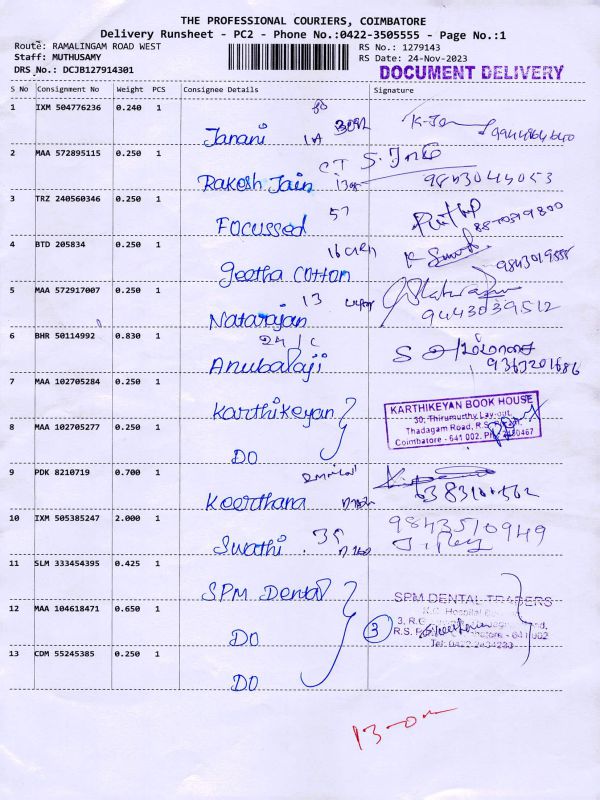 THE PROFESSIONAL COURIERS, COIMBATORE
Delivery Runsheet - PC2 - Phone No.:0422-3505555 - Page No.:1
Route: RAMALINGAM ROAD WEST
Staff: MUTHUSAMY
DRS No.: DCJB127914301
RS No.: 1279143
RS Date: 24-Nov-2023
DOCUMENT DELIVERY
S No Consignment No Weight PCS Consignee Details Signature
1 IXM 504776236 0.240 1
Janani
9944864640
2 MAA 572895115 0.250 1
Rakesh Jain CT
9843044053
3 TRZ 240560346 0.250 1
Focussed 57
4 BTD 205834 0.250 1
Geetha Cotton
5 MAA 572917007 0.250 1
Natarajan 13
9443039512
6 BHR 50114992 0.830 1
Anubalaji 24/c
9367201686
7 MAA 102705284 0.250 1
Karthikeyan
KARTHIKEYAN BOOK HOUSE
30, Thirumurthy Lay-out,
Thadagam Road, R.S.
Coimbatore - 641 002.
8 MAA 102705277 0.250 1
DO
9 PDK 8210719 0.700 1
Keerthana
6383100562
10 IXM 505385247 2.000 1
Swathi
9843510949
11 SLM 333454395 0.425 1
SPM Dental
SPM DENTAL TRADERS
12 MAA 104618471 0.650 1
DO
3
13 CDM 55245385 0.250 1
DO